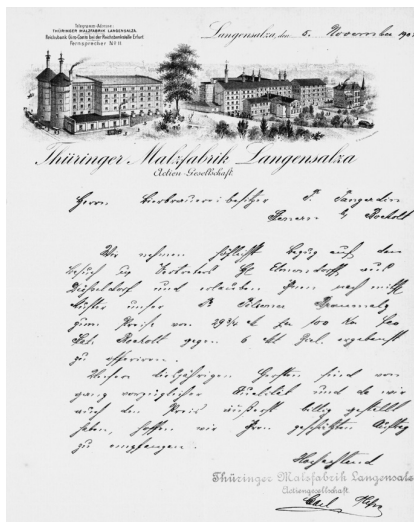 Telegramm-Adresse:
THÜRINGER MALZFABRIK LANGENSALZA.
Reichsbank Giro-Conto bei der Reichsbankstelle Erfurt
Fernsprecher Nº 11
Langensalza, den 5. November 190
Thüringer Malzfabrik Langensalza
Actien-Gesellschaft.
Herrn Bierbrauereibesitzer
Bocholt
Wir nehmen höflichst Bezug auf den
Besuch Vertreters aus
Düsseldorf und erlauben Ihnen nach
Muster unser Ia Pilsener
zum Preise von 29¾ M per 100 Ko
Bocholt gegen 6 Mt Ziel ergebenst
zu offeriren.
Unsere diesjährigen Gersten sind von
ganz vorzüglicher Qualität und da wir
auch den Preis äußerst billig gestellt
haben, hoffen wir Ihren geschätzten Auftrag
zu empfangen.
Hochachtend
Thüringer Malzfabrik Langensalz
Actiengesellschaft